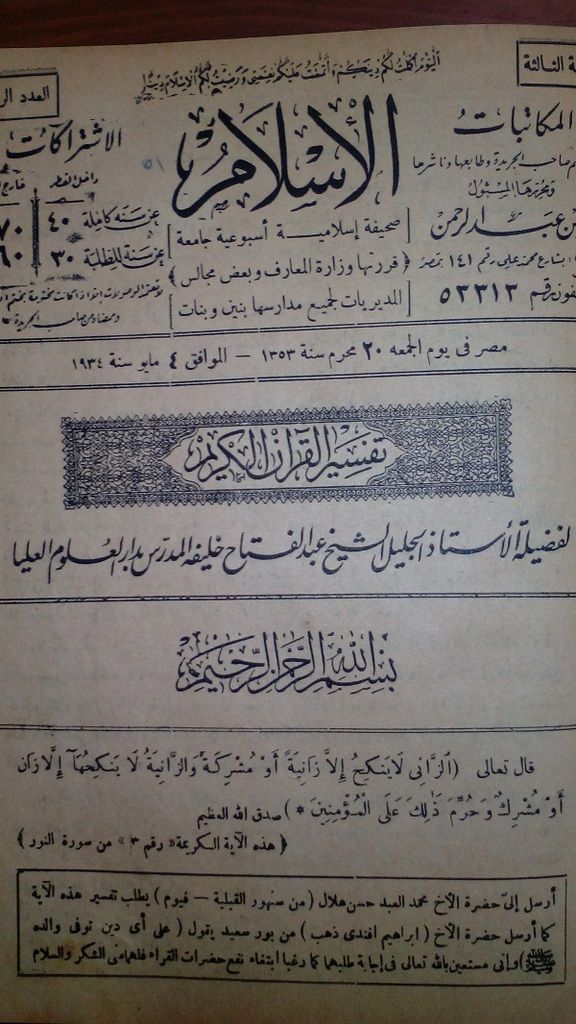 اليوم أكملت لكم دينكم وأتممت عليكم نعمتي ورضيت لكم الإسلام دينا
ة الثالثة
العدد الر
الإسلام
المكاتبات
م صاحب الجريدة وطابعها وناشرها
ومحررها المسئول
ن عبد الرحمن
بشارع محمد علي رقم ١٤١ بمصر
فون رقم ٥٢٣١٣
صحيفة إسلامية أسبوعية جامعة
( قررتها وزارة المعارف وبعض مجالس )
المديريات لجميع مدارسها بنين وبنات
الاشتراكات
داخل القطر
خارج
عن سنة كاملة ٤٠ ٧٠
عن سنة للطلبة ٣٠ ٦٠
مصر فى يوم الجمعه ٢٠ محرم سنة ١٣٥٣ — الموافق ٤ مايو سنة ١٩٣٤
تفسير القرآن الكريم
لفضيلة الأستاذ الجليل الشيخ عبد الفتاح خليفه المدرس بدار العلوم العليا
بسم الله الرحمن الرحيم
قال تعالى (اَلزَّانِى لاَيَنكِحُ إِلاَّ زَانِيَةً أَوْ مُشْرِكَةً وَالزَّانِيَةُ لاَ يَنكِحُهَآ إِلاَّ زَانٍ
أَوْ مُشْرِكٌ وَحُرِّمَ ذَٰلِكَ عَلَى الْمُؤْمِنِينَ * ) صدق الله العظيم
( هذه الآية الكريمة « رقم ٣ » من سورة النور )
أرسل إلىّ حضرة الأخ محمد العبد حسن هلال ( من سنهور القبلية — فيوم ) يطلب تفسير هذه الآية
كما أرسل حضرة الأخ ( ابراهيم افندى ذهب ) من بور سعيد يقول ( على أى دين توفى والده
ﷺ ) وإنى مستعين بالله تعالى فى إجابة طلبهما كما رغبا ابتغاء نفع حضرات القراء فلهما منى الشكر والسلام